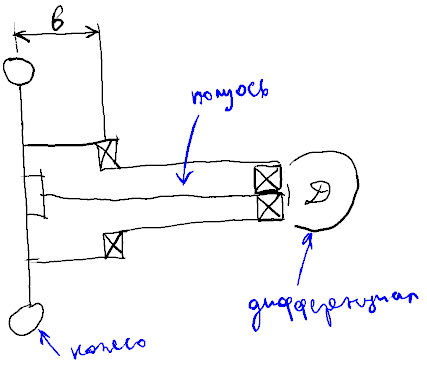 в
полуось
Д
дифференциал
колесо